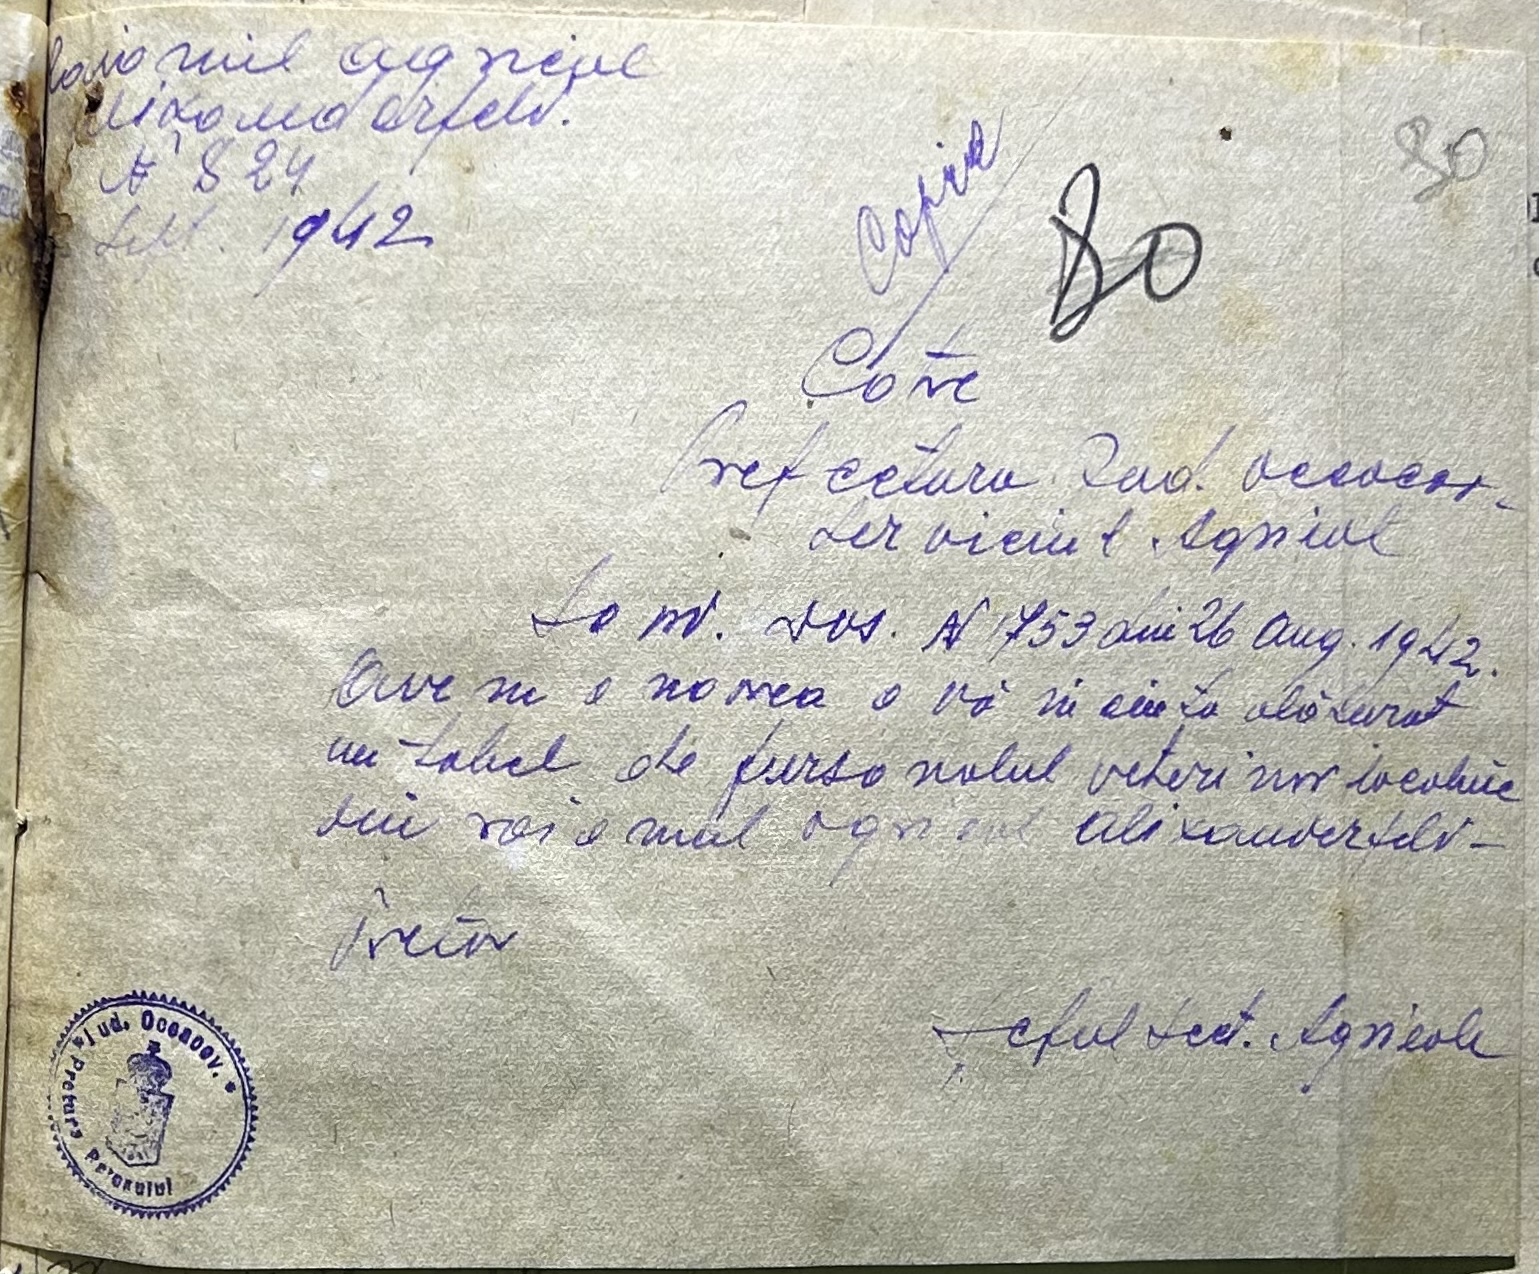 Raionul agricol
Alixanderfeld.
N 824
Sept. 1942
Copie
80
80
Către
Prefectura Jud. Oceacov-
Serviciul Agricol
La ord. Dvs. N 1753 din 26 Aug. 1942.
Avem onoarea a vă inainta alăturat
un tabel de personalul veterinar localnic
din raionul agricol Alixanderfeld-
Pretor
Șeful Sect. Agricole
Jud. Oceacov. * Pretura Raionului *